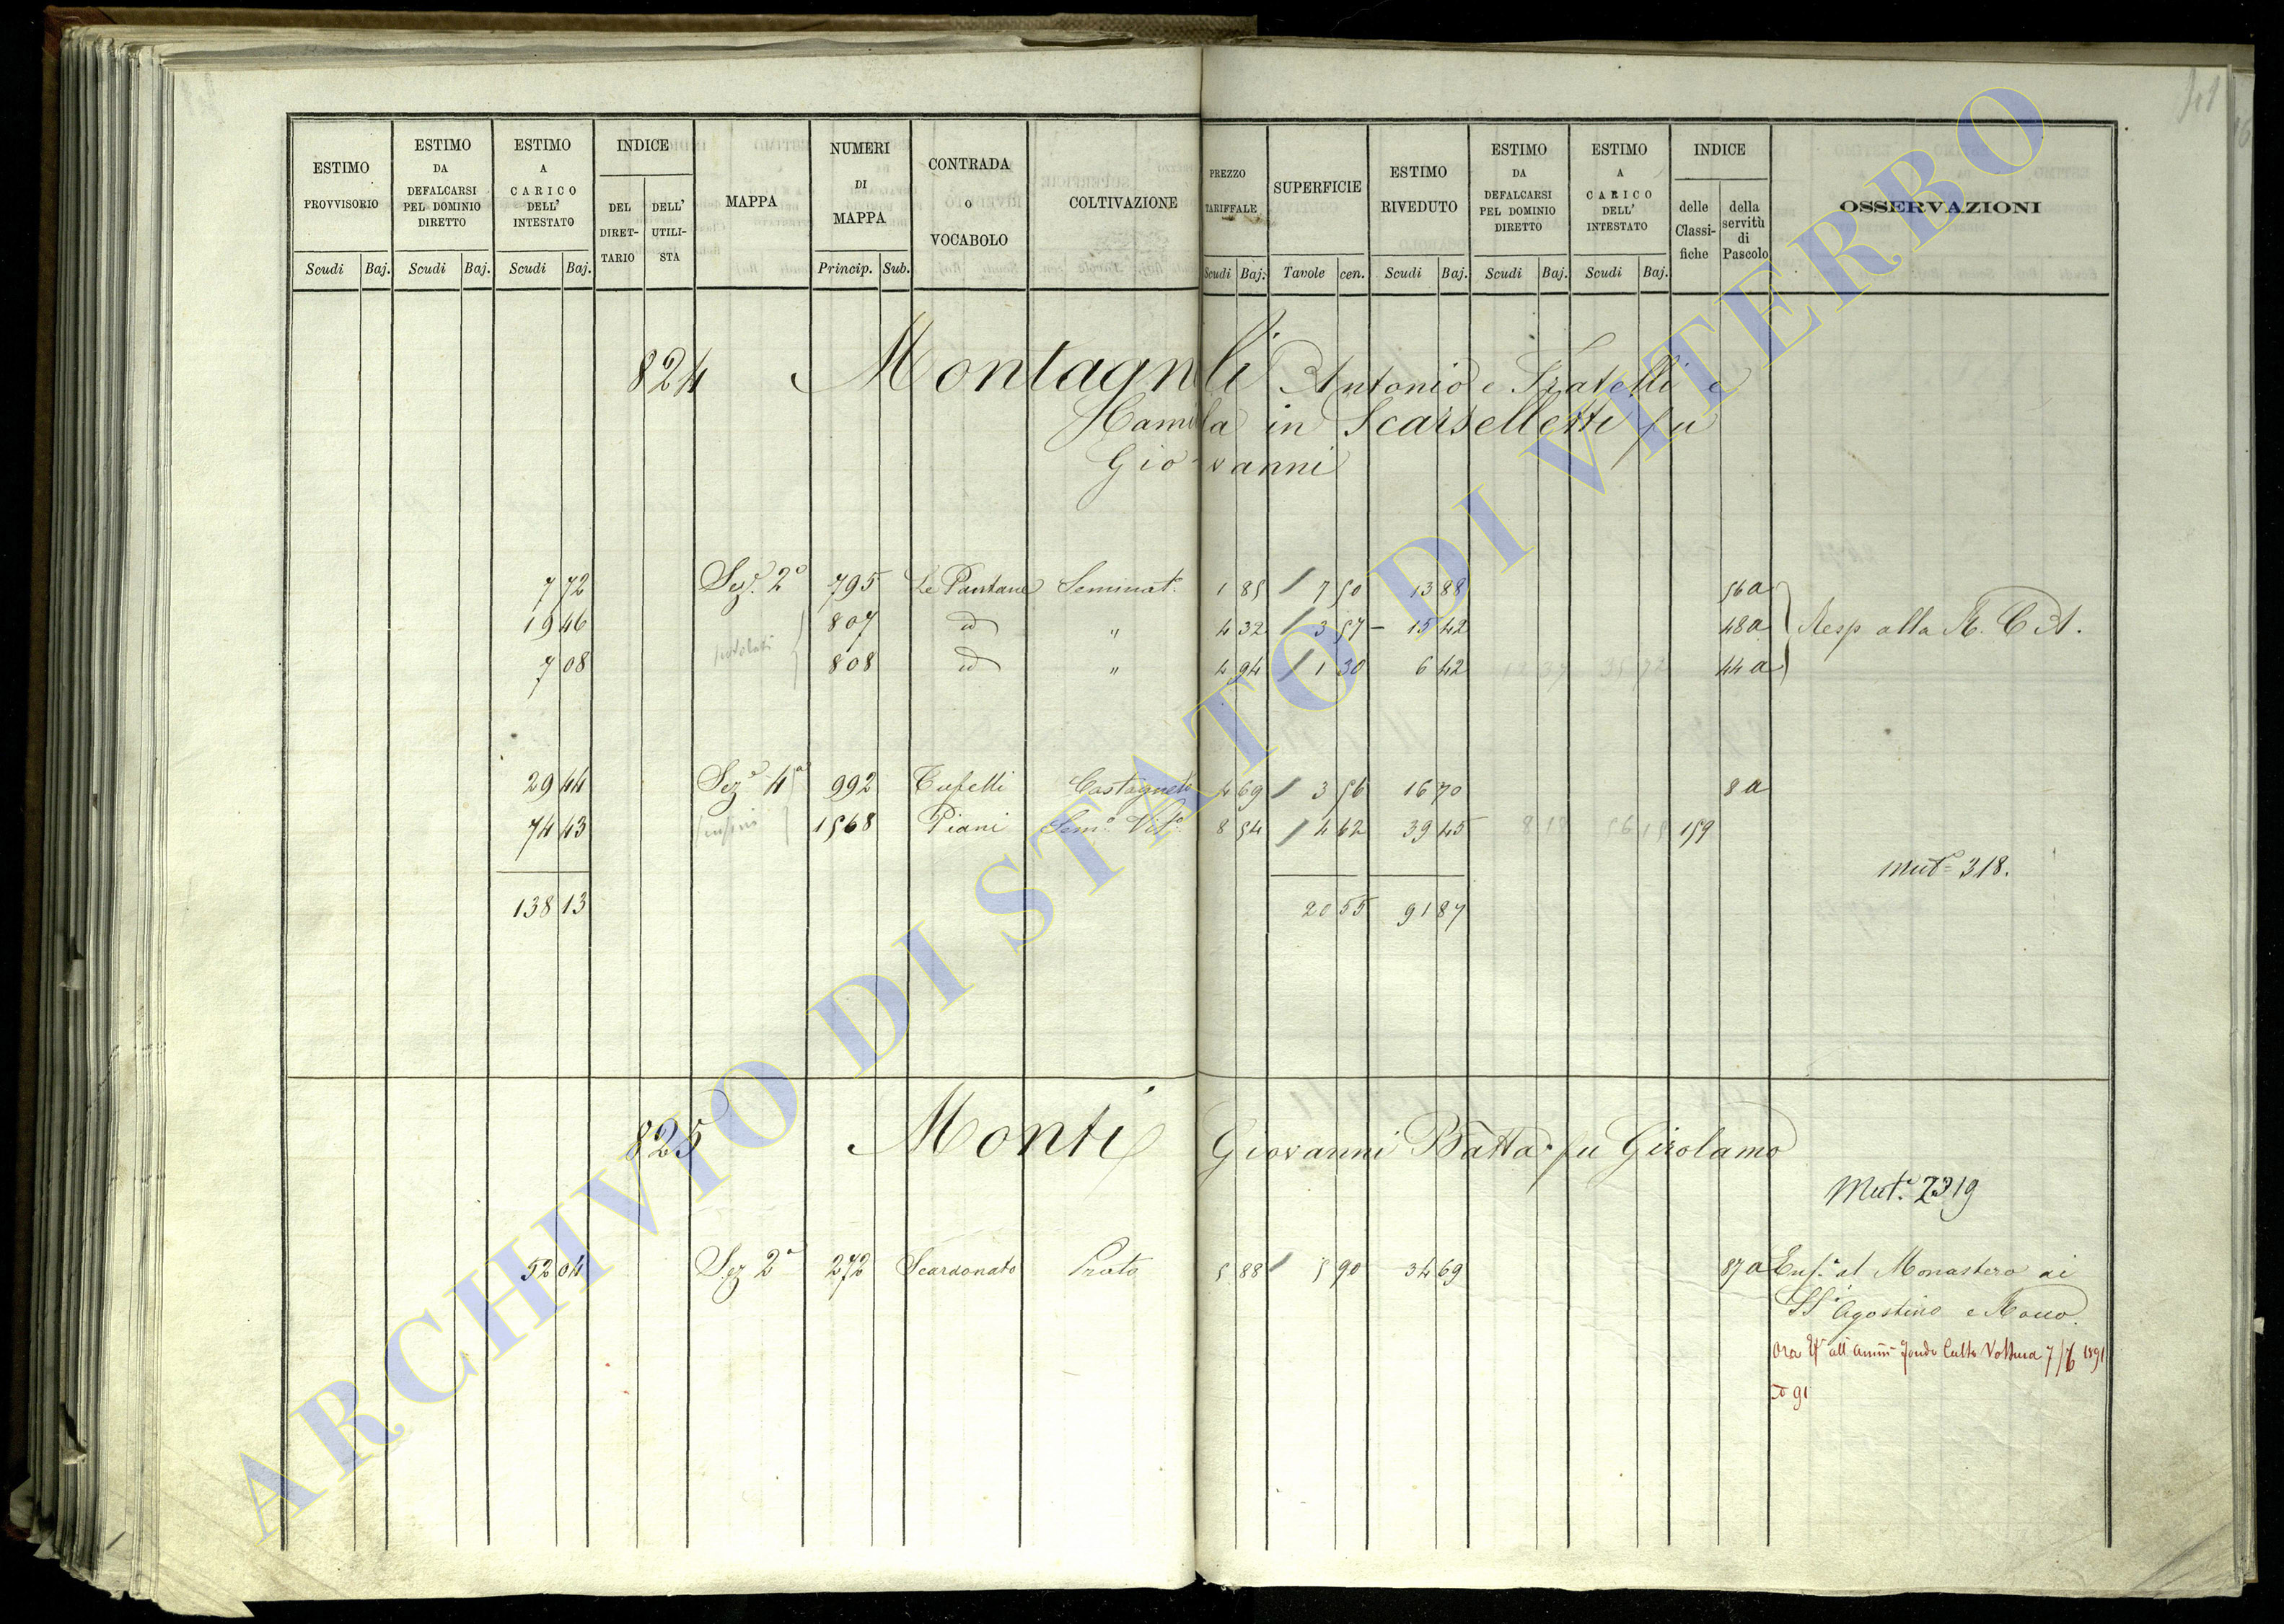 41
ESTIMO PROVVISORIO Scudi Baj.
ESTIMO DA DEFALCARSI PEL DOMINIO DIRETTO Scudi Baj.
ESTIMO A CARICO DELL' INTESTATO Scudi Baj.
INDICE DEL DIRETTARIO DELL' UTILISTA
MAPPA
NUMERI DI MAPPA Princip. Sub.
CONTRADA o VOCABOLO
COLTIVAZIONE
PREZZO TARIFFALE Scudi Baj.
SUPERFICIE Tavole cen.
ESTIMO RIVEDUTO Scudi Baj.
ESTIMO DA DEFALCARSI PEL DOMINIO DIRETTO Scudi Baj.
ESTIMO A CARICO DELL' INTESTATO Scudi Baj.
INDICE delle Classifiche della servitù di Pascolo
OSSERVAZIONI
824 Montagnoli Antonio e Fratelli e
Camilla in Scarselletti fu
Giovanni
7 72 Sez. 2ª 795 Le Pantane Seminat.º 1 85 / 7 50 13 88 56 a
19 46 807 id " 4 32 / 3 57 - 15 42 48 a Resp alla R. C. A.
7 08 808 id " 4 94 / 1 30 6 42 44 a
29 44 Sez.e 4ª 992 Tufelli Castagneto 4 69 / 3 56 16 70 8 a
74 43 1568 Piani Sem.º Vit.º 8 54 / 4 62 39 45 159
Mut.e 318.
138 13 20 55 91 87
825 Monti Giovanni Batta. fu Girolamo
Mut.e 2319
52 04 Sez 2ª 272 Scardonato Prato 5 88 / 5 90 34 69 87 a Enf.a al Monastero ai
SS. Agostino e Rocco.
Ora all' Ammi Fondo Culto Voltura 7/6 1891
91
ARCHIVIO DI STATO DI VITERBO